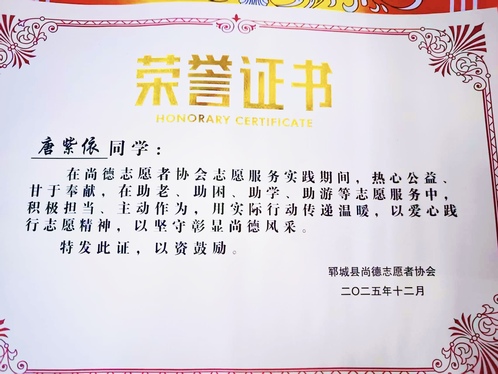 荣誉证书
HONORARY CERTIFICATE
唐紫依同学：
在尚德志愿者协会志愿服务实践期间，热心公益、
甘于奉献，在助老、助困、助学、助游等志愿服务中，
积极担当、主动作为，用实际行动传递温暖，以爱心践
行志愿精神，以坚守彰显尚德风采。
特发此证，以资鼓励。
郓城县尚德志愿者协会
二〇二五年十二月